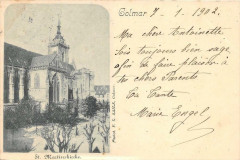 Colmar 7-1.1902.
Ma chere Antoinette
Sois toujours bien sage
afin de faire plaisir à
tes chers Parents
La Tante
Marie Engel
St. Martinskirche.